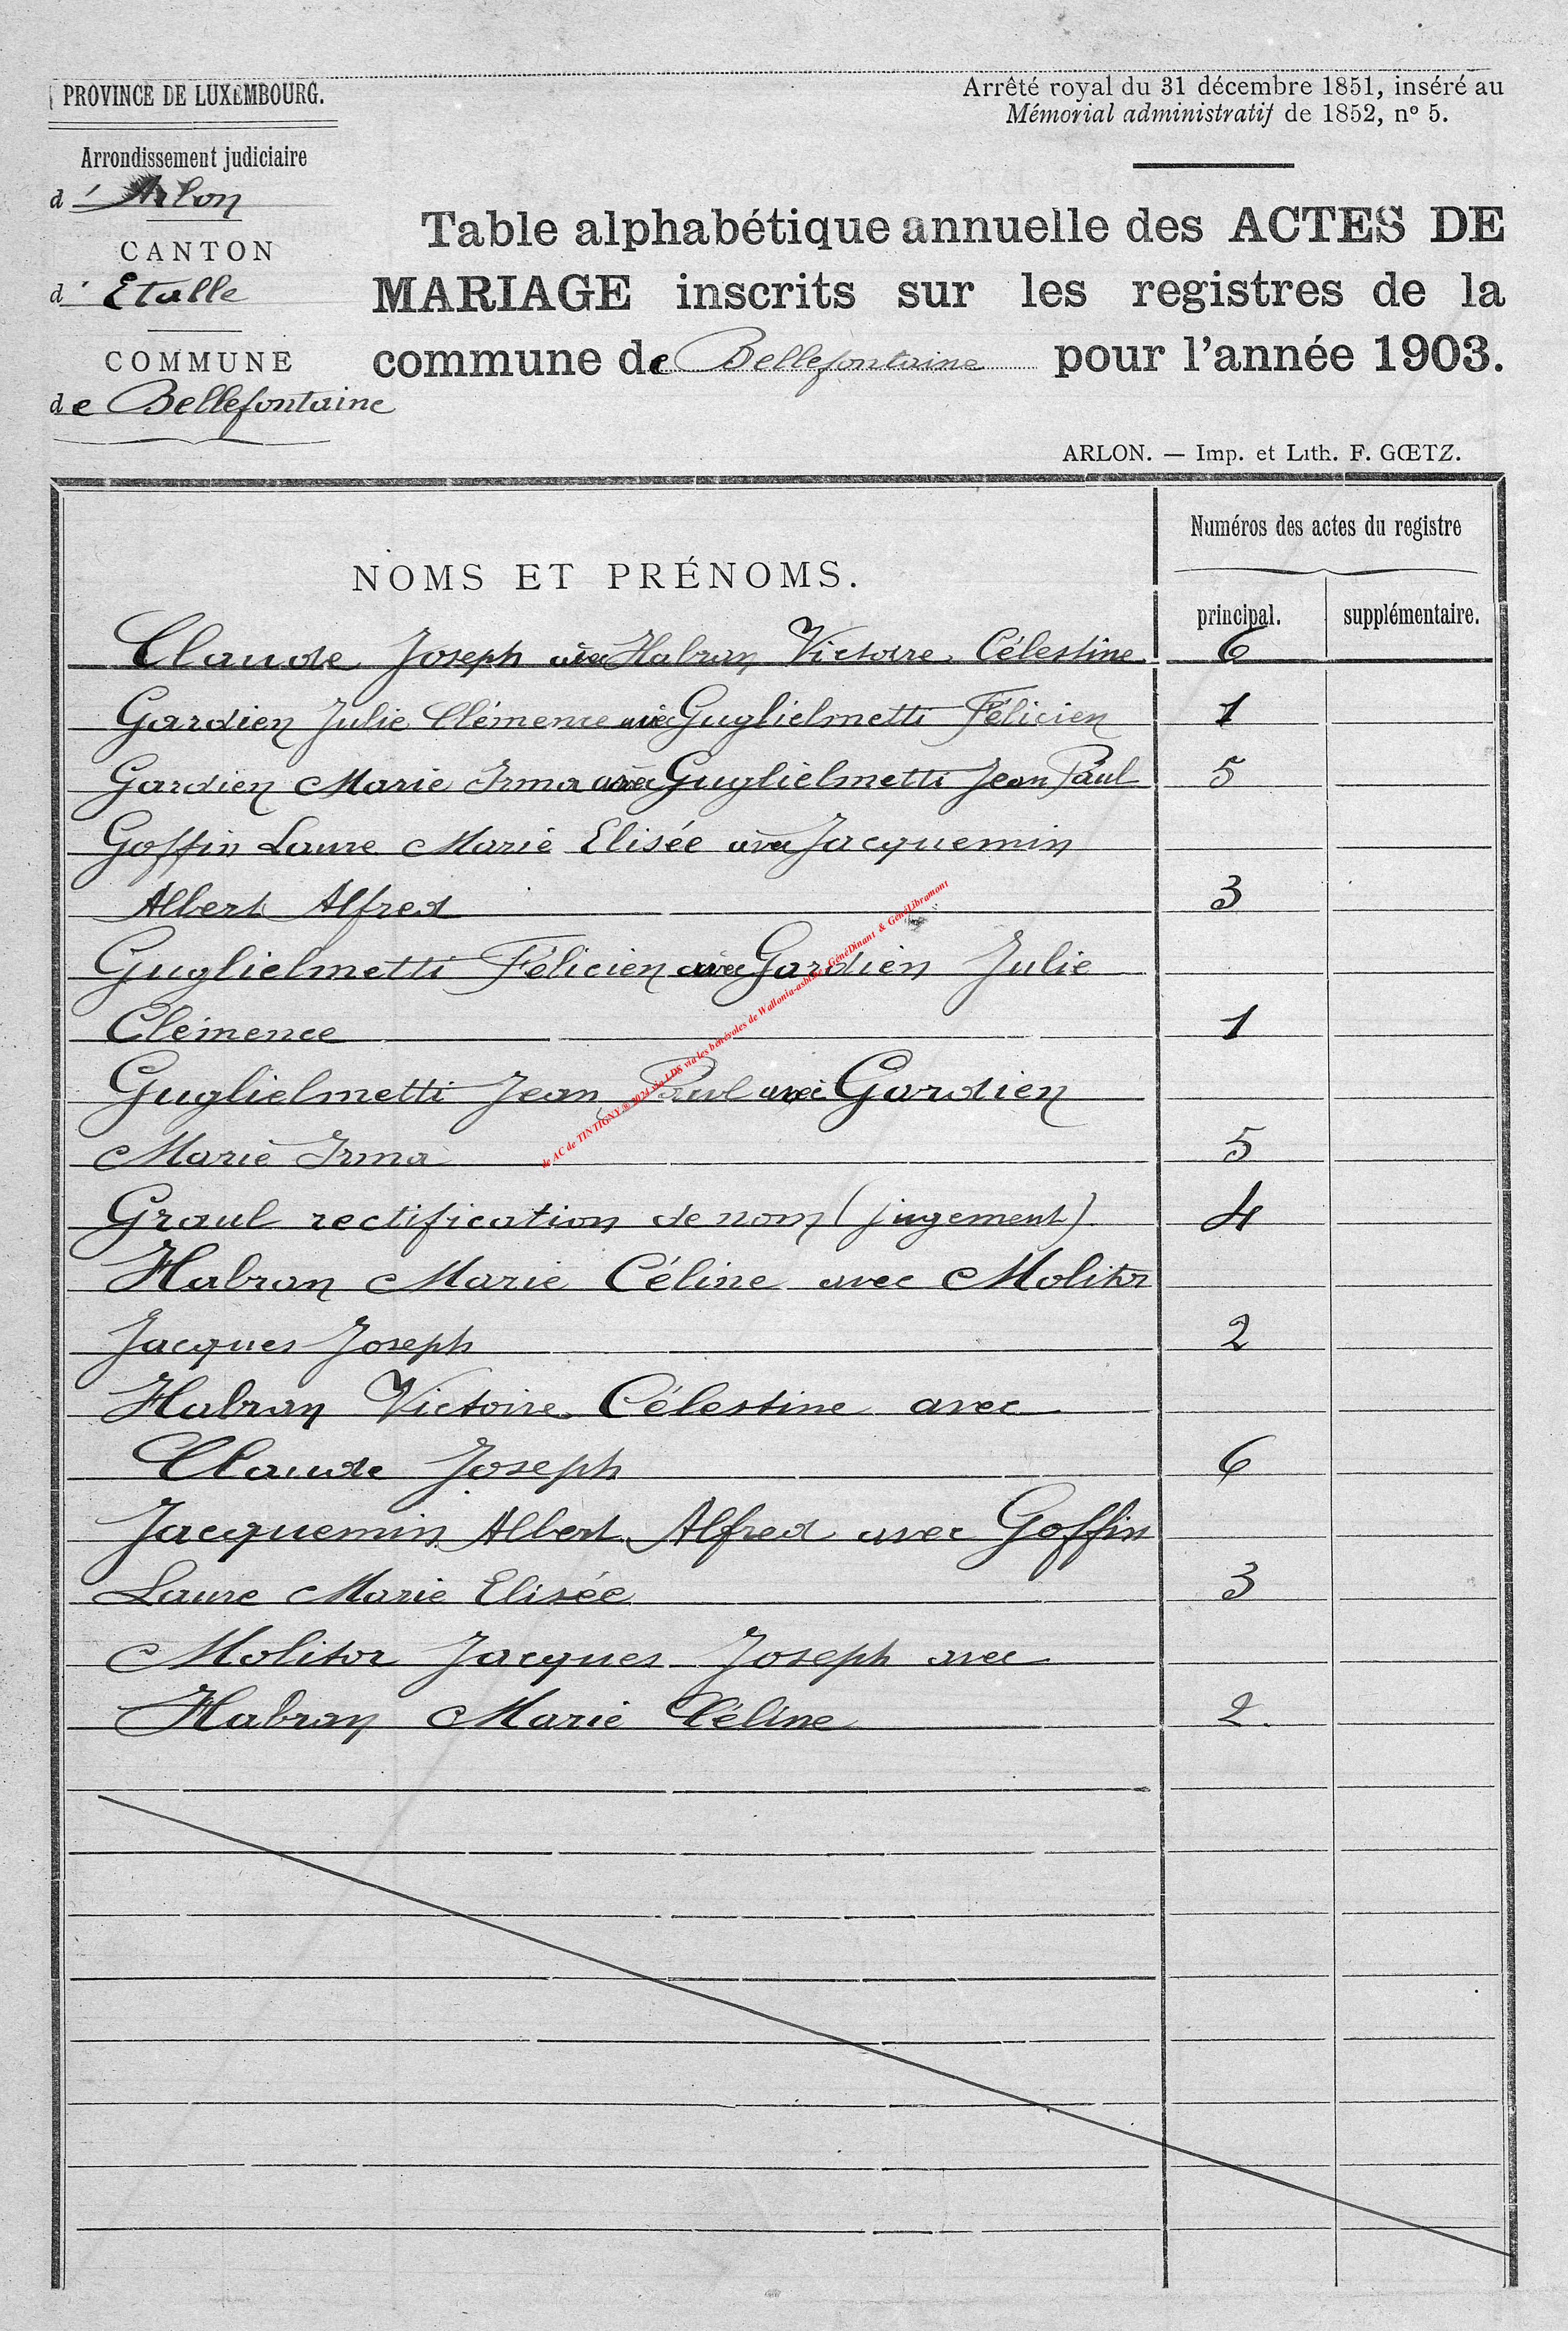 PROVINCE DE LUXEMBOURG.
Arrondissement judiciaire
d' Arlon
CANTON
d' Etalle
COMMUNE
de Bellefontaine
Arrêté royal du 31 décembre 1851, inséré au
Mémorial administratif de 1852, nº 5.
Table alphabétique annuelle des ACTES DE
MARIAGE inscrits sur les registres de la
commune de Bellefontaine pour l'année 1903.
ARLON. — Imp. et Lith. F. GŒTZ.
NOMS ET PRÉNOMS.
Numéros des actes du registre
principal. supplémentaire.
Claude Joseph avec Habran Victoire Célestine 6
Gardien Julie Clémence avec Guglielmetti Félicien 1
Gardien Marie Irma avec Guglielmetti Jean Paul 5
Goffin Laure Marie Elisée avec Jacquemin
Albert Alfred 3
Guglielmetti Félicien avec Gardien Julie
Clémence 1
Guglielmetti Jean Paul avec Gardien
Marie Irma 5
Graul rectification de nom (jugement) 4
Habran Marie Céline avec Molitor
Jacques Joseph 2
Habran Victoire Célestine avec
Claude Joseph 6
Jacquemin Albert Alfred avec Goffin
Laure Marie Elisée 3
Molitor Jacques Joseph avec
Habran Marie Céline 2.
de AC de TINTIGNY © 2024 via LDS via les bénévoles de Wallonia-asbl GénéDinant & GénéLibramont